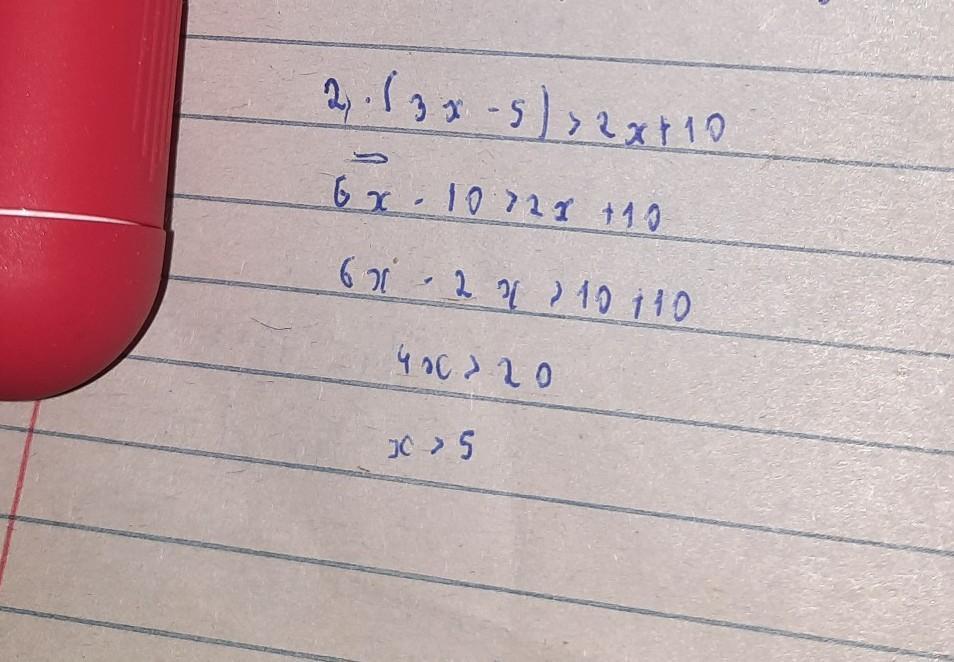 2, · (3x - 5) > 2x + 10
⇒
6x - 10 > 2x + 10
6x - 2x > 10 + 10
4x > 20
x > 5